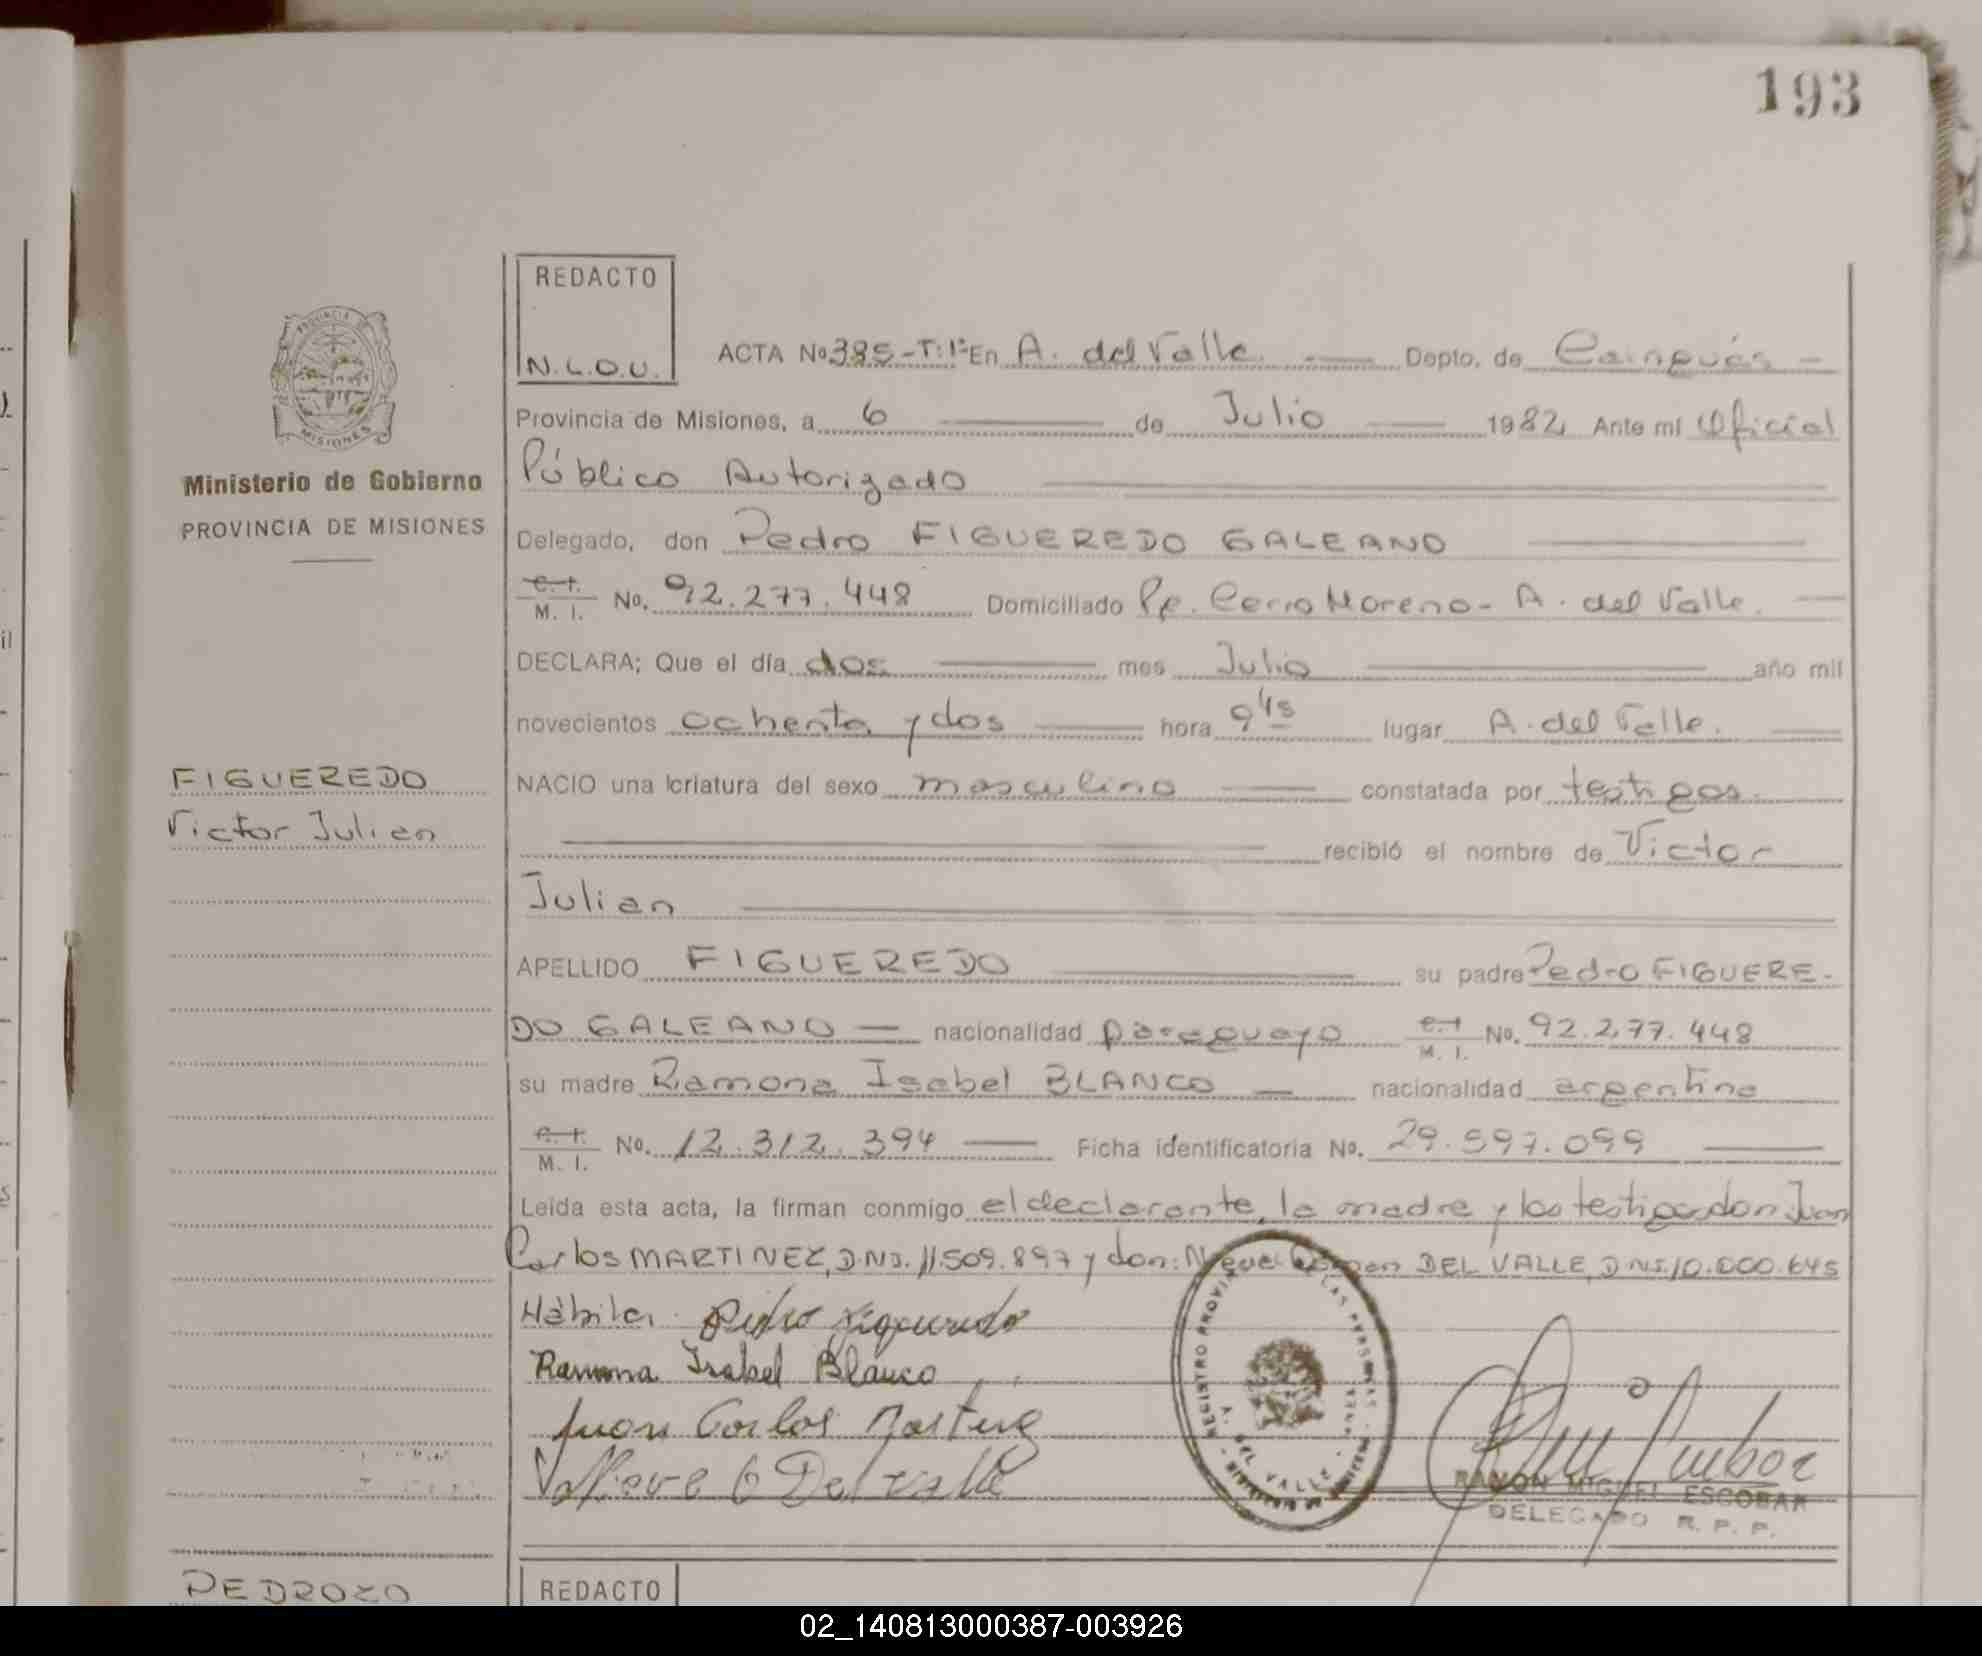 193
REDACTO
N.L.O.U.
PROVINCIA DE
MISIONES
Ministerio de Gobierno
PROVINCIA DE MISIONES
ACTA No 385-T:1º En A. del Valle. Depto. de Cainguás
Provincia de Misiones, a 6 de Julio 1982 Ante mi Oficial
Público Autorizado
Delegado, don Pedro FIGUEREDO GALEANO
C. I.
M. I. No. 92.277.448 Domiciliado Pje. Cerro Moreno - A. del Valle.
DECLARA; Que el día dos mes Julio año mil
novecientos ochenta y dos hora 9 45 lugar A. del Valle.
NACIO una criatura del sexo masculino constatada por testigos
recibió el nombre de Victor
Julian
FIGUEREDO
Victor Julian
APELLIDO FIGUEREDO su padre Pedro FIGUERE-
DO GALEANO nacionalidad paraguayo C. I. M. I. No. 92.277.448
su madre Ramona Isabel BLANCO nacionalidad argentina
C. I.
M. I. No. 12.312.394 Ficha identificatoria No. 29.597.099
Leída esta acta, la firman conmigo el declarante, la madre y los testigos don Juan
Carlos MARTINEZ, D.N.I. 11.509.897 y don: DEL VALLE, D.N.I. 10.000.645
Hábiles. Pedro Figueredo
Ramona Isabel Blanco
Juan Carlos Martinez
Del Valle
REGISTRO PROVIN LAS PERSONAS
A. DEL VALLE
RAMON MIGUEL ESCOBAR
DELEGADO R. P. P.
PEDROZO
REDACTO
02_140813000387-003926